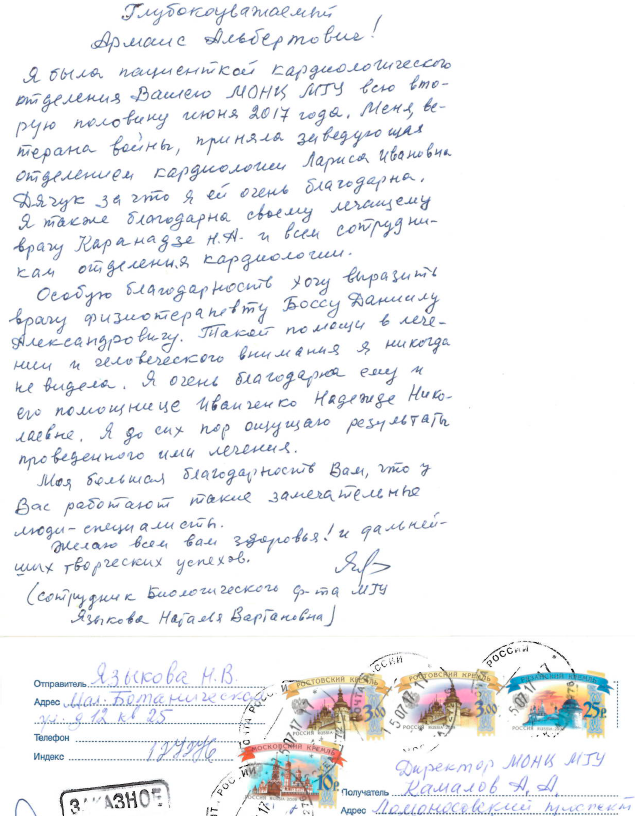 Глубокоуважаемый
Армаис Альбертович!
Я была пациенткой кардиологического
отделения Вашего МОНЦ МГУ всю вто-
рую половину июня 2017 года. Меня, ве-
терана войны, приняла заведующая
отделением кардиологии Лариса Ивановна
Дячук за что я ей очень благодарна.
Я также благодарна своему лечащему
врачу Каранадзе Н.А. и всем сотрудни-
кам отделения кардиологии.
Особую благодарность хочу выразить
врачу физиотерапевту Боссу Даниилу
Александровичу. Такой помощи в лече-
нии и человеческого внимания я никогда
не видела. Я очень благодарна ему и
его помощнице Иванченко Надежде Нико-
лаевне. Я до сих пор ощущаю результаты
проведенного ими лечения.
Моя большая благодарность Вам, что у
Вас работают такие замечательные
люди-специалисты.
Желаю всем вам здоровья! и дальней-
ших творческих успехов.
(сотрудник Биологического ф-та МГУ
Языкова Наталья Вартановна)
Отправитель Языкова Н.В.
Адрес Мал. Ботаническая
ул. д 12 кв 25
Телефон
Индекс
ЗАКАЗНОЕ
РОСТОВСКИЙ КРЕМЛЬ
3.00
РОССИЯ
РОСТОВСКИЙ КРЕМЛЬ
3.00
РОССИЯ
КАЗАНСКИЙ КРЕМЛЬ
25р
РОССИЯ
МОСКОВСКИЙ КРЕМЛЬ
10р
РОССИЯ
Директор МОНЦ МГУ
Получатель Камалов А.А.
Адрес Ломоносовский проспект